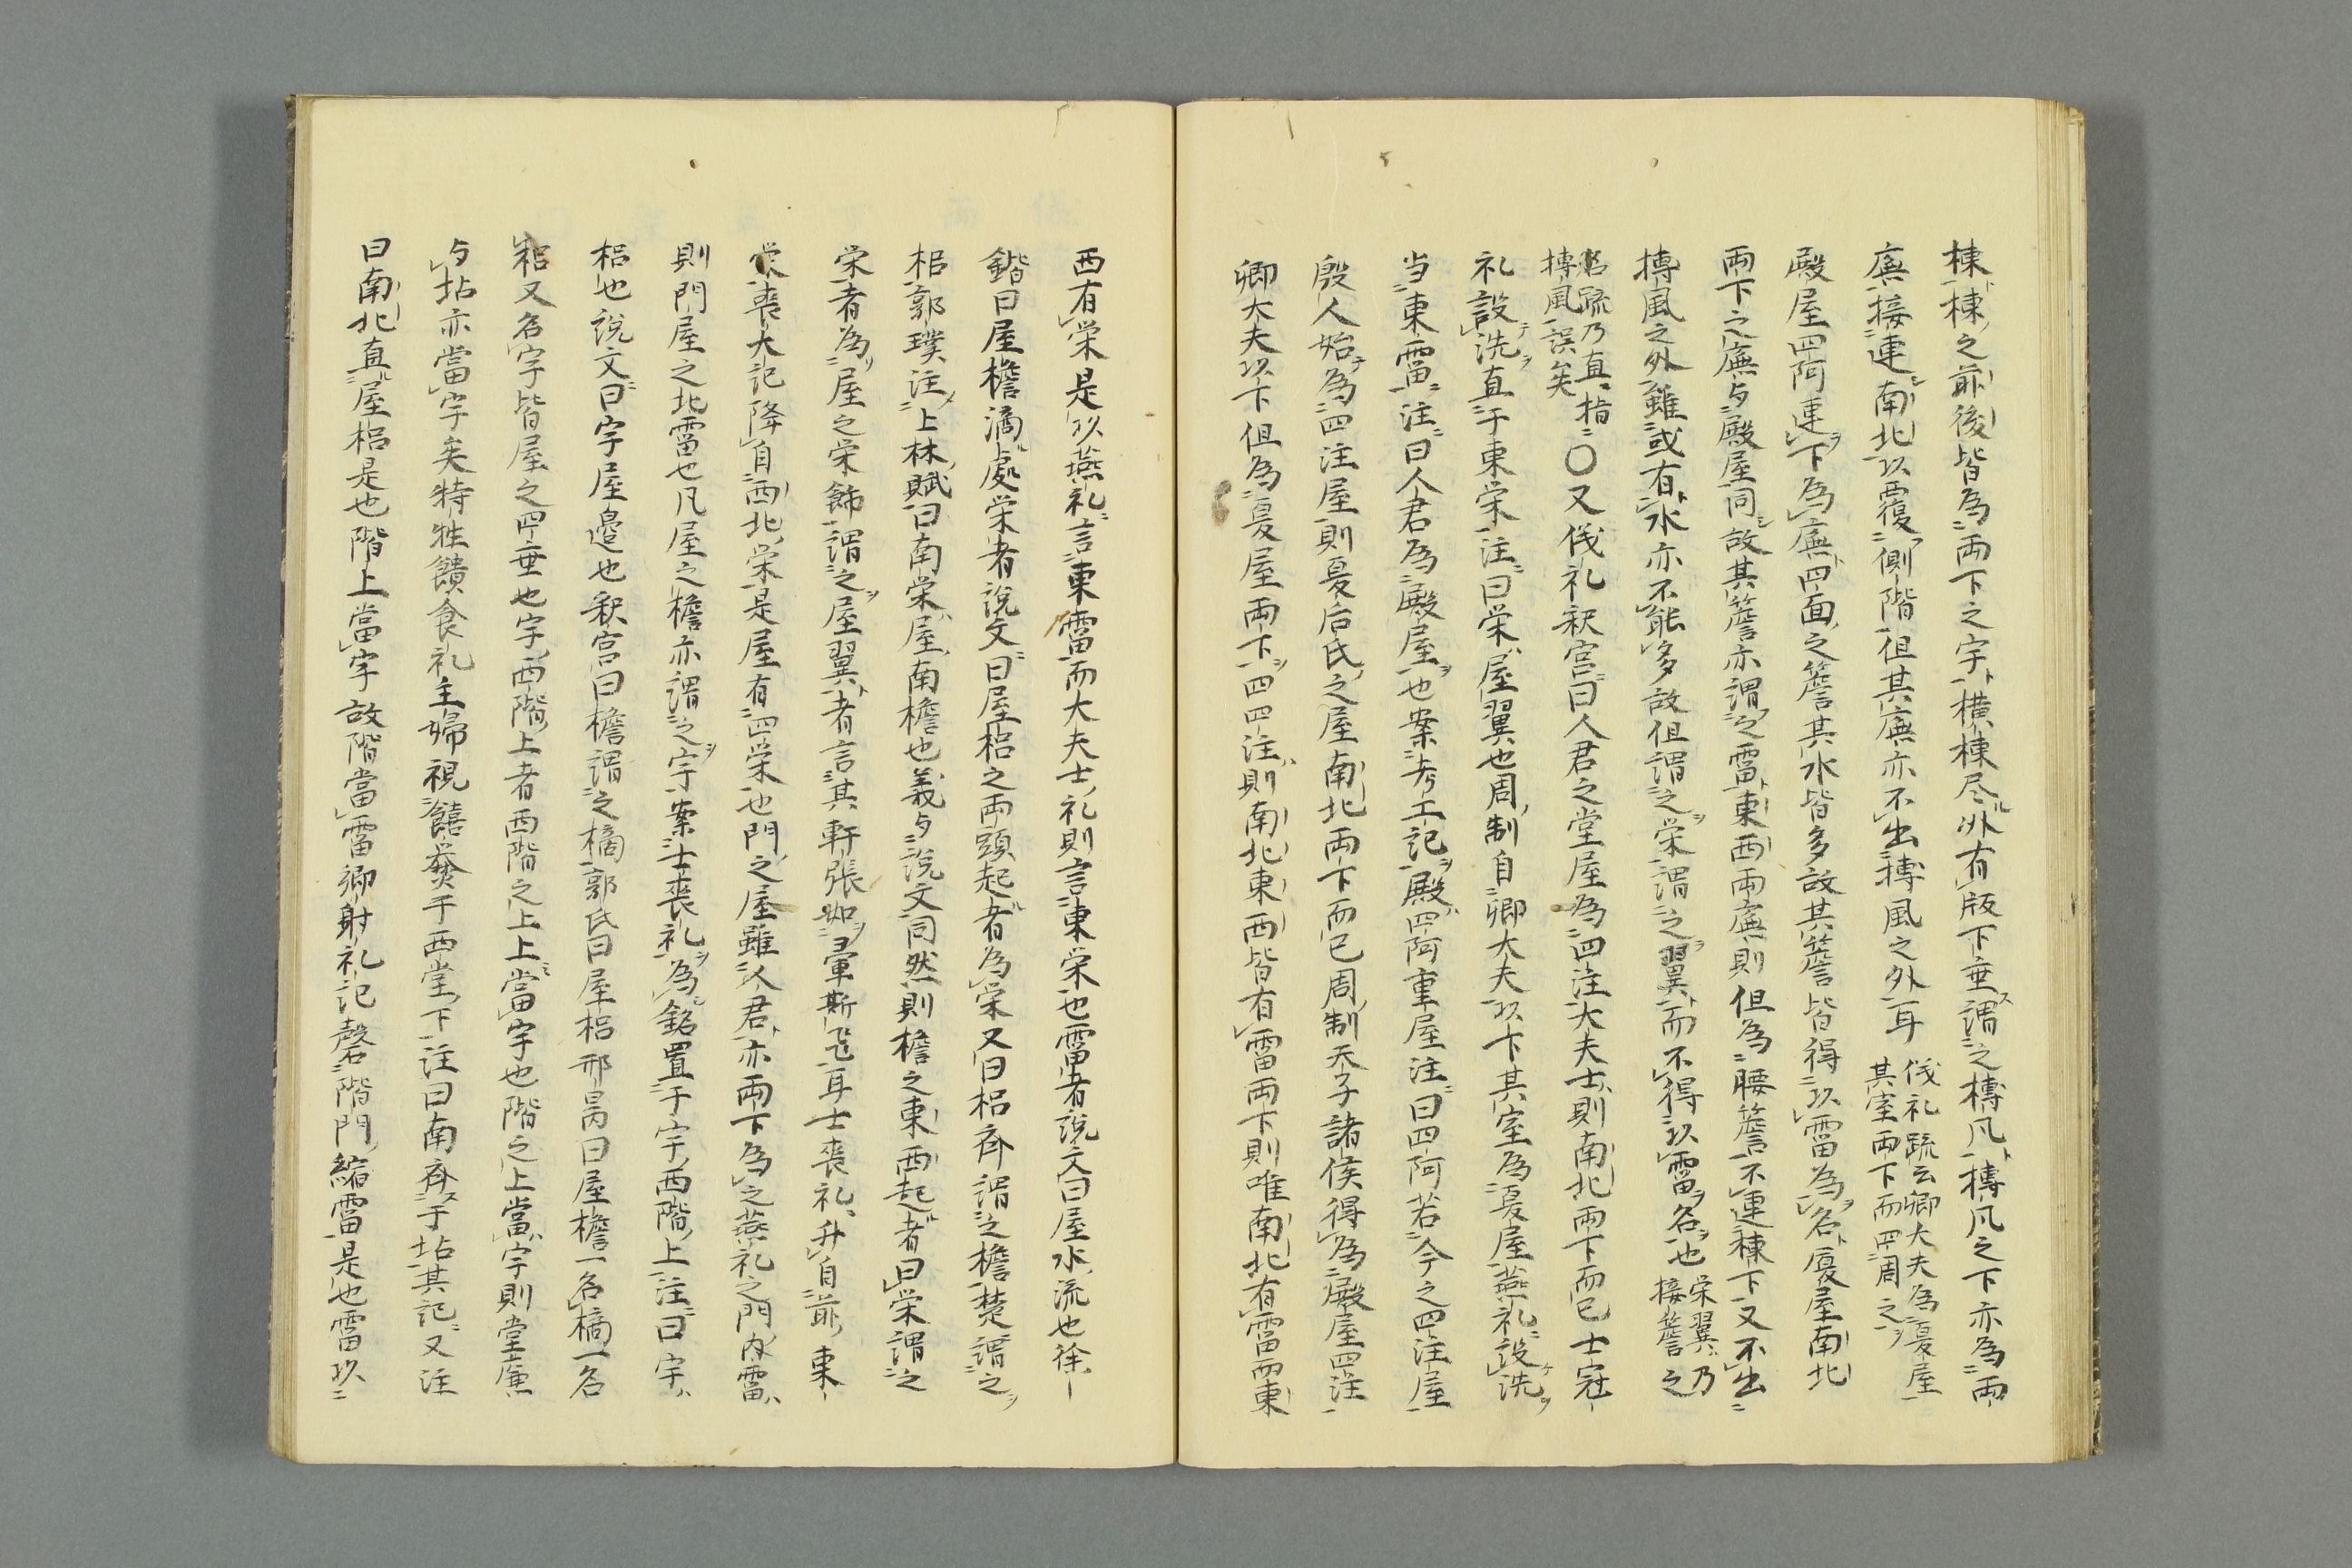 棟棟之前後皆為両下之宇横棟尽外有版下垂謂之榑凡榑凡之下亦為両
廡接連南北以覆側階但其廡亦不出搏風之外耳 儀礼疏云卿大夫為夏屋其室両下而四周之
殿屋四阿連下為廡四面之簷其水皆多故其簷皆得以霤為名厦屋南北
両下之廡与殿屋同故其簷亦謂之霤東西両廡則但為腰簷不連棟下又不出
搏風之外雖或有水亦不能多故但謂之栄謂之翼而不得以霤名也 栄翼乃接簷之
名疏乃直指搏風誤矣 〇又儀礼釈宮曰人君之堂屋為四注大夫士則南北両下而已士冠
礼設洗直于東栄注曰栄屋翼也周制自卿大夫以下其室為夏屋燕礼設洗
当東霤注曰人君為殿屋也案考工記殿四阿重屋注曰四阿若今之四注屋
殷人始為四注屋則夏后氏之屋南北両下而已周制天子諸侯得為殿屋四注
卿大夫以下但為夏屋両下四注則南北東西皆有霤両下則唯南北有霤而東
西有栄是以燕礼言東霤而大夫士礼則言東栄也霤者説文曰屋水流也徐
鍇曰屋檐滴処栄者説文曰屋梠之両頭起者為栄又曰梠斉謂之檐楚謂之
梠郭璞注上林賦曰南栄屋南檐也義与説文同然則檐之東西起者曰栄謂之
栄者為屋之栄飾謂之屋翼者言其軒張如翬斯飛耳士喪礼升自前東
栄喪大記降自西北栄是屋有四栄也門之屋雖人君亦両下為之燕礼之門内霤
則門屋之北霤也凡屋之檐亦謂之宇案士喪礼為銘置于宇西階上注曰宇
梠也説文曰宇屋邉也釈宮曰檐謂之樀郭氏曰屋梠邢昺曰屋檐一名樀一名
梠又名宇皆屋之四垂也宇西階上者西階之上上當宇也階之上當宇則堂廉
与坫亦當宇矣特牲饋食礼主婦視饎爨于西堂下注曰南斉于坫其記又注
曰南北直屋梠是也階上當宇故階當霤郷射礼記磬階門縮霤是也霤以